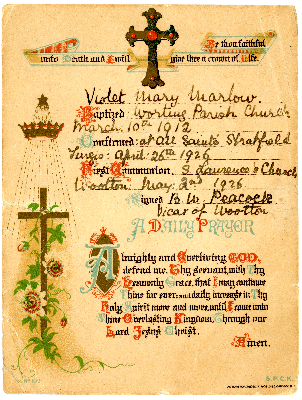 Be thou faithful
unto Death and I will give thee a crown of Life.
Violet Mary Marlow.
Baptized Worting Parish Church
March 10th 1912
Confirmed: at All Saints, Stratfield
Turgis: April: 26th 1926
First Communion. S. Laurence's Church
Wootton. May. 2nd 1926
Signed B. W. Peacock
Vicar of Wootton
A DAILY PRAYER
Almighty and Everliving GOD,
defend me, Thy servant, with Thy
Heavenly Grace, that I may continue
Thine for ever: and daily increase in Thy
Holy Spirit more and more, until I come unto
Thine Everlasting Kingdom, Through our
Lord Jesus Christ.
Amen.
S.P.C.K.